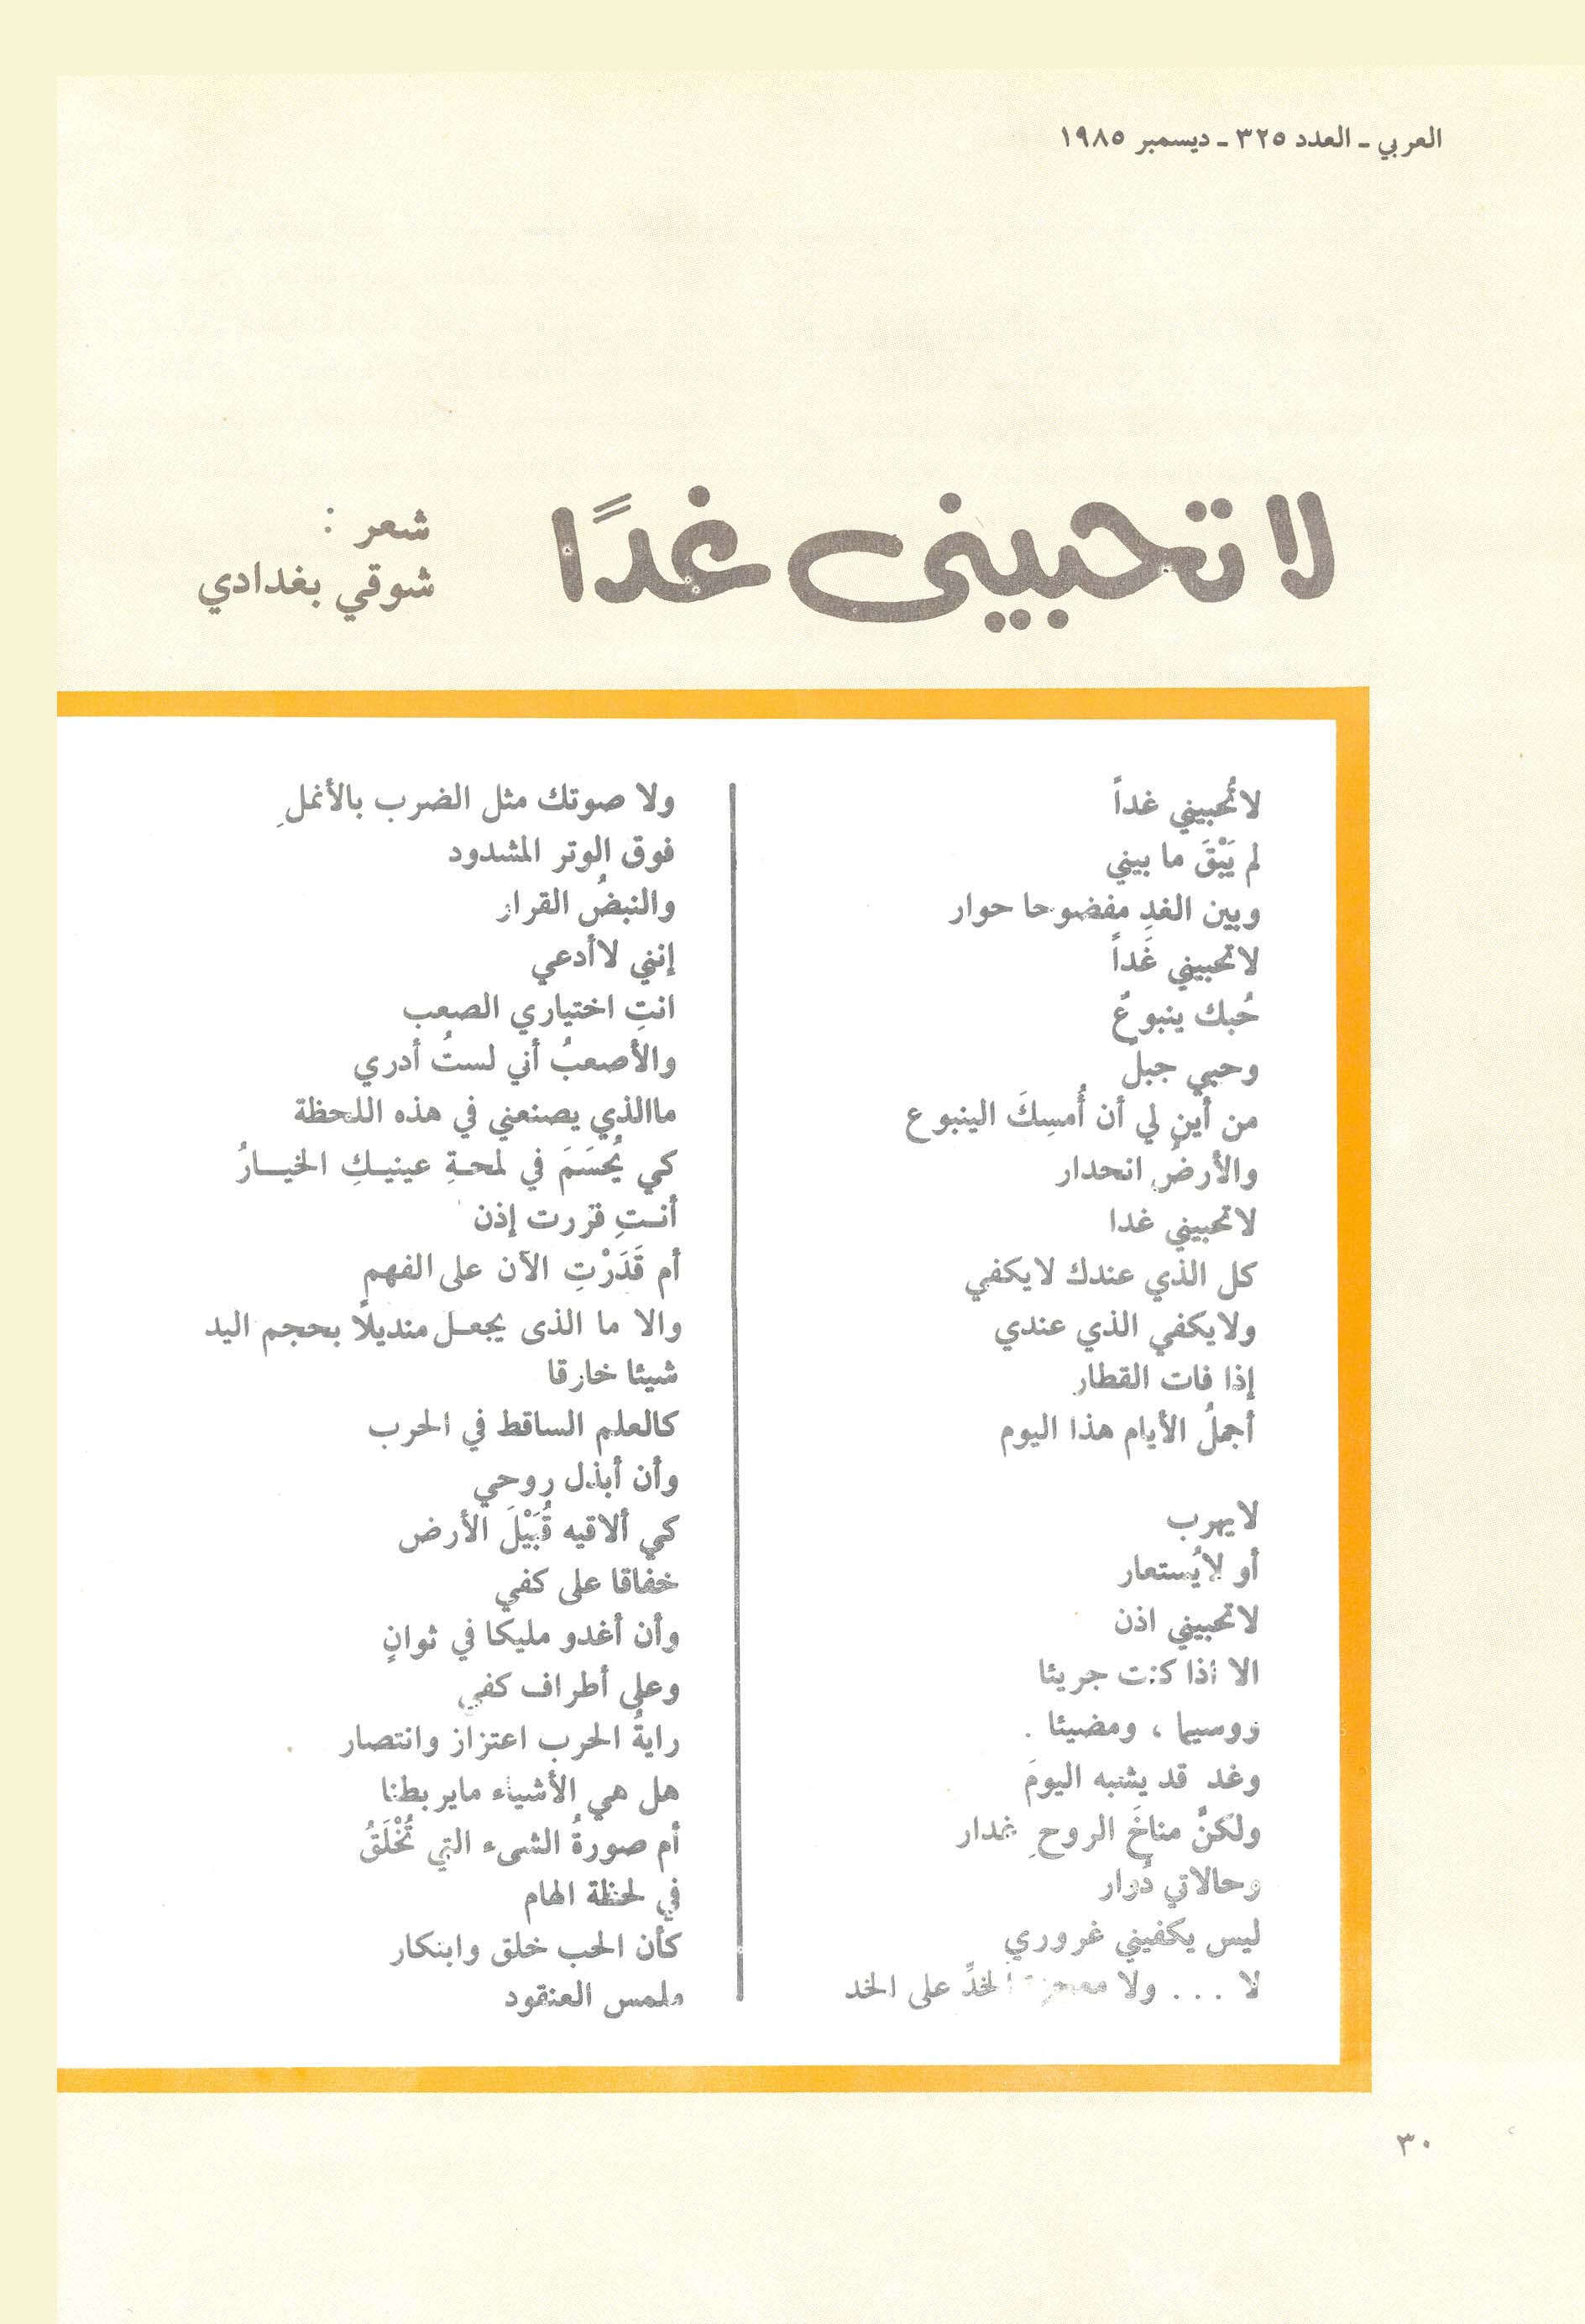 العربي ـ العدد ٣٢٥ ـ ديسمبر ١٩٨٥
لا تحبيني غدًا
شعر :
شوقي بغدادي
لاتُحبيني غداً
لم يَبْقَ ما بيني
وبين الغدِ مفضوحا حوار
لاتحبيني غَداً
حُبك ينبوعٌ
وحبي جبلٌ
من أين لي أن أُمسِكَ الينبوع
والأرضُ انحدار
لاتحبيني غدا
كل الذي عندك لايكفي
ولايكفي الذي عندي
إذا فات القطار
أجملُ الأيام هذا اليوم
لايهرب
أو لايُستعار
لاتحبيني اذن
الا اذا كنت جريئا
ووسيما ، ومضيئا .
وغد قد يشبه اليومَ
ولكنَّ مناخَ الروحِ غدار
وحالاتي دُوار
ليس يكفيني غروري
لا . . . ولا الخدِّ على الخد
ولا صوتك مثل الضرب بالأنملِ
فوق الوتر المشدود
والنبضُ القرار
إنني لاأدعي
انتِ اختياري الصعب
والأصعبُ أني لستُ أدري
ماالذي يصنعني في هذه اللحظة
كي يُحسَمَ في لمحةِ عينيكِ الخيارُ
أنتِ قررت إذن
أم قَدَرْتِ الآن على الفهم
والا ما الذى يجعل منديلاً بحجم اليد
شيئا خارقا
كالعلم الساقط في الحرب
وأن أبذل روحي
كي ألاقيه قُبَيْلَ الأرض
خفاقا على كفي
وأن أغدو مليكا في ثوانٍ
وعلى أطراف كفي
رايةُ الحرب اعتزاز وانتصار
هل هي الأشياء مايربطنا
أم صورةُ الشىء التي تُخْلَقُ
في لحظة الهام
كأن الحب خلق وابتكار
ملمس العنقود
٣٠